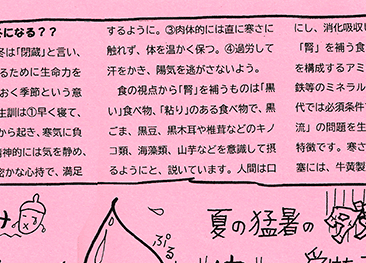 冬になる？？
冬は「閉蔵」と言い、
るために生命力を
おく季節という意
生訓は①早く寝て、
から起き、寒気に負
精神的には気を静め、
密かな心持で、満足
するように。③肉体的には直に寒さに
触れず、体を温かく保つ。④過労して
汗をかき、陽気を逃がさないよう。
食の視点から「腎」を補うものは「黒
い」食べ物、「粘り」のある食べ物で、黒
ごま、黒豆、黒木耳や椎茸などのキノ
コ類、海藻類、山芋などを意識して摂
るようにと、説いています。人間は口
にし、消化吸収し
「腎」を補う食
を構成するアミ
鉄等のミネラル
代では必須条件
流」の問題を生
特徴です。寒さ
塞には、牛黄製
ぷる
夏の猛暑の